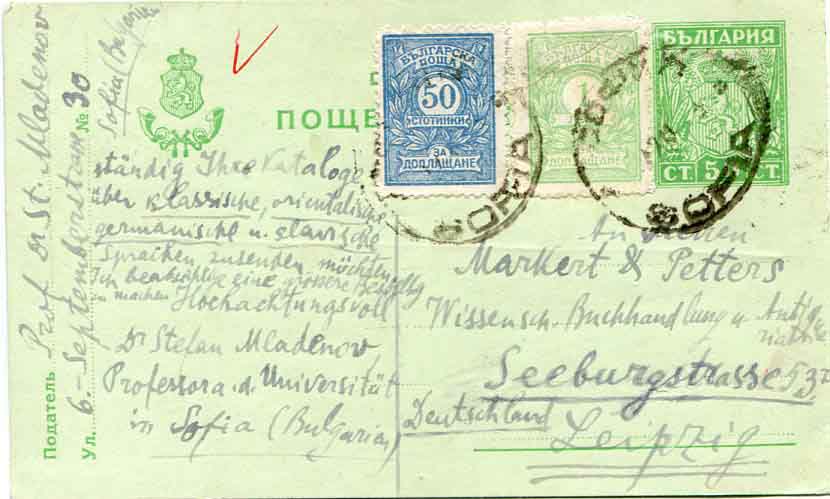 БЪЛГАРСКА ПОЩА
50
СТОТИНКИ
ЗА ДОПЛАЩАНЕ
БЪЛГАРСКА ПОЩА
1
ЗА ДОПЛАЩАНЕ
БЪЛГАРИЯ
СТ. 5 СТ.
SOFIA
SOFIA
ПОЩЕ
Податель Prof Dr St. Mladenov
Ул. 6.-Septemberstrasse № 30
Sofia (Bulgarien)
ständig Ihre Kataloge
über klassische, orientalische
germanische u. slavische
Sprachen zusenden möchten.
Ich beabsichtige eine grössere
zu machen
Hochachtungsvoll
Dr Stefan Mladenov,
Professor a. d. Universität
in Sofia (Bulgarien)
An
Markert & Petters
Wissensch. Buchhandlung u. Antiqua
riat
Seeburgstrasse 53
Deutschland
Leipzig